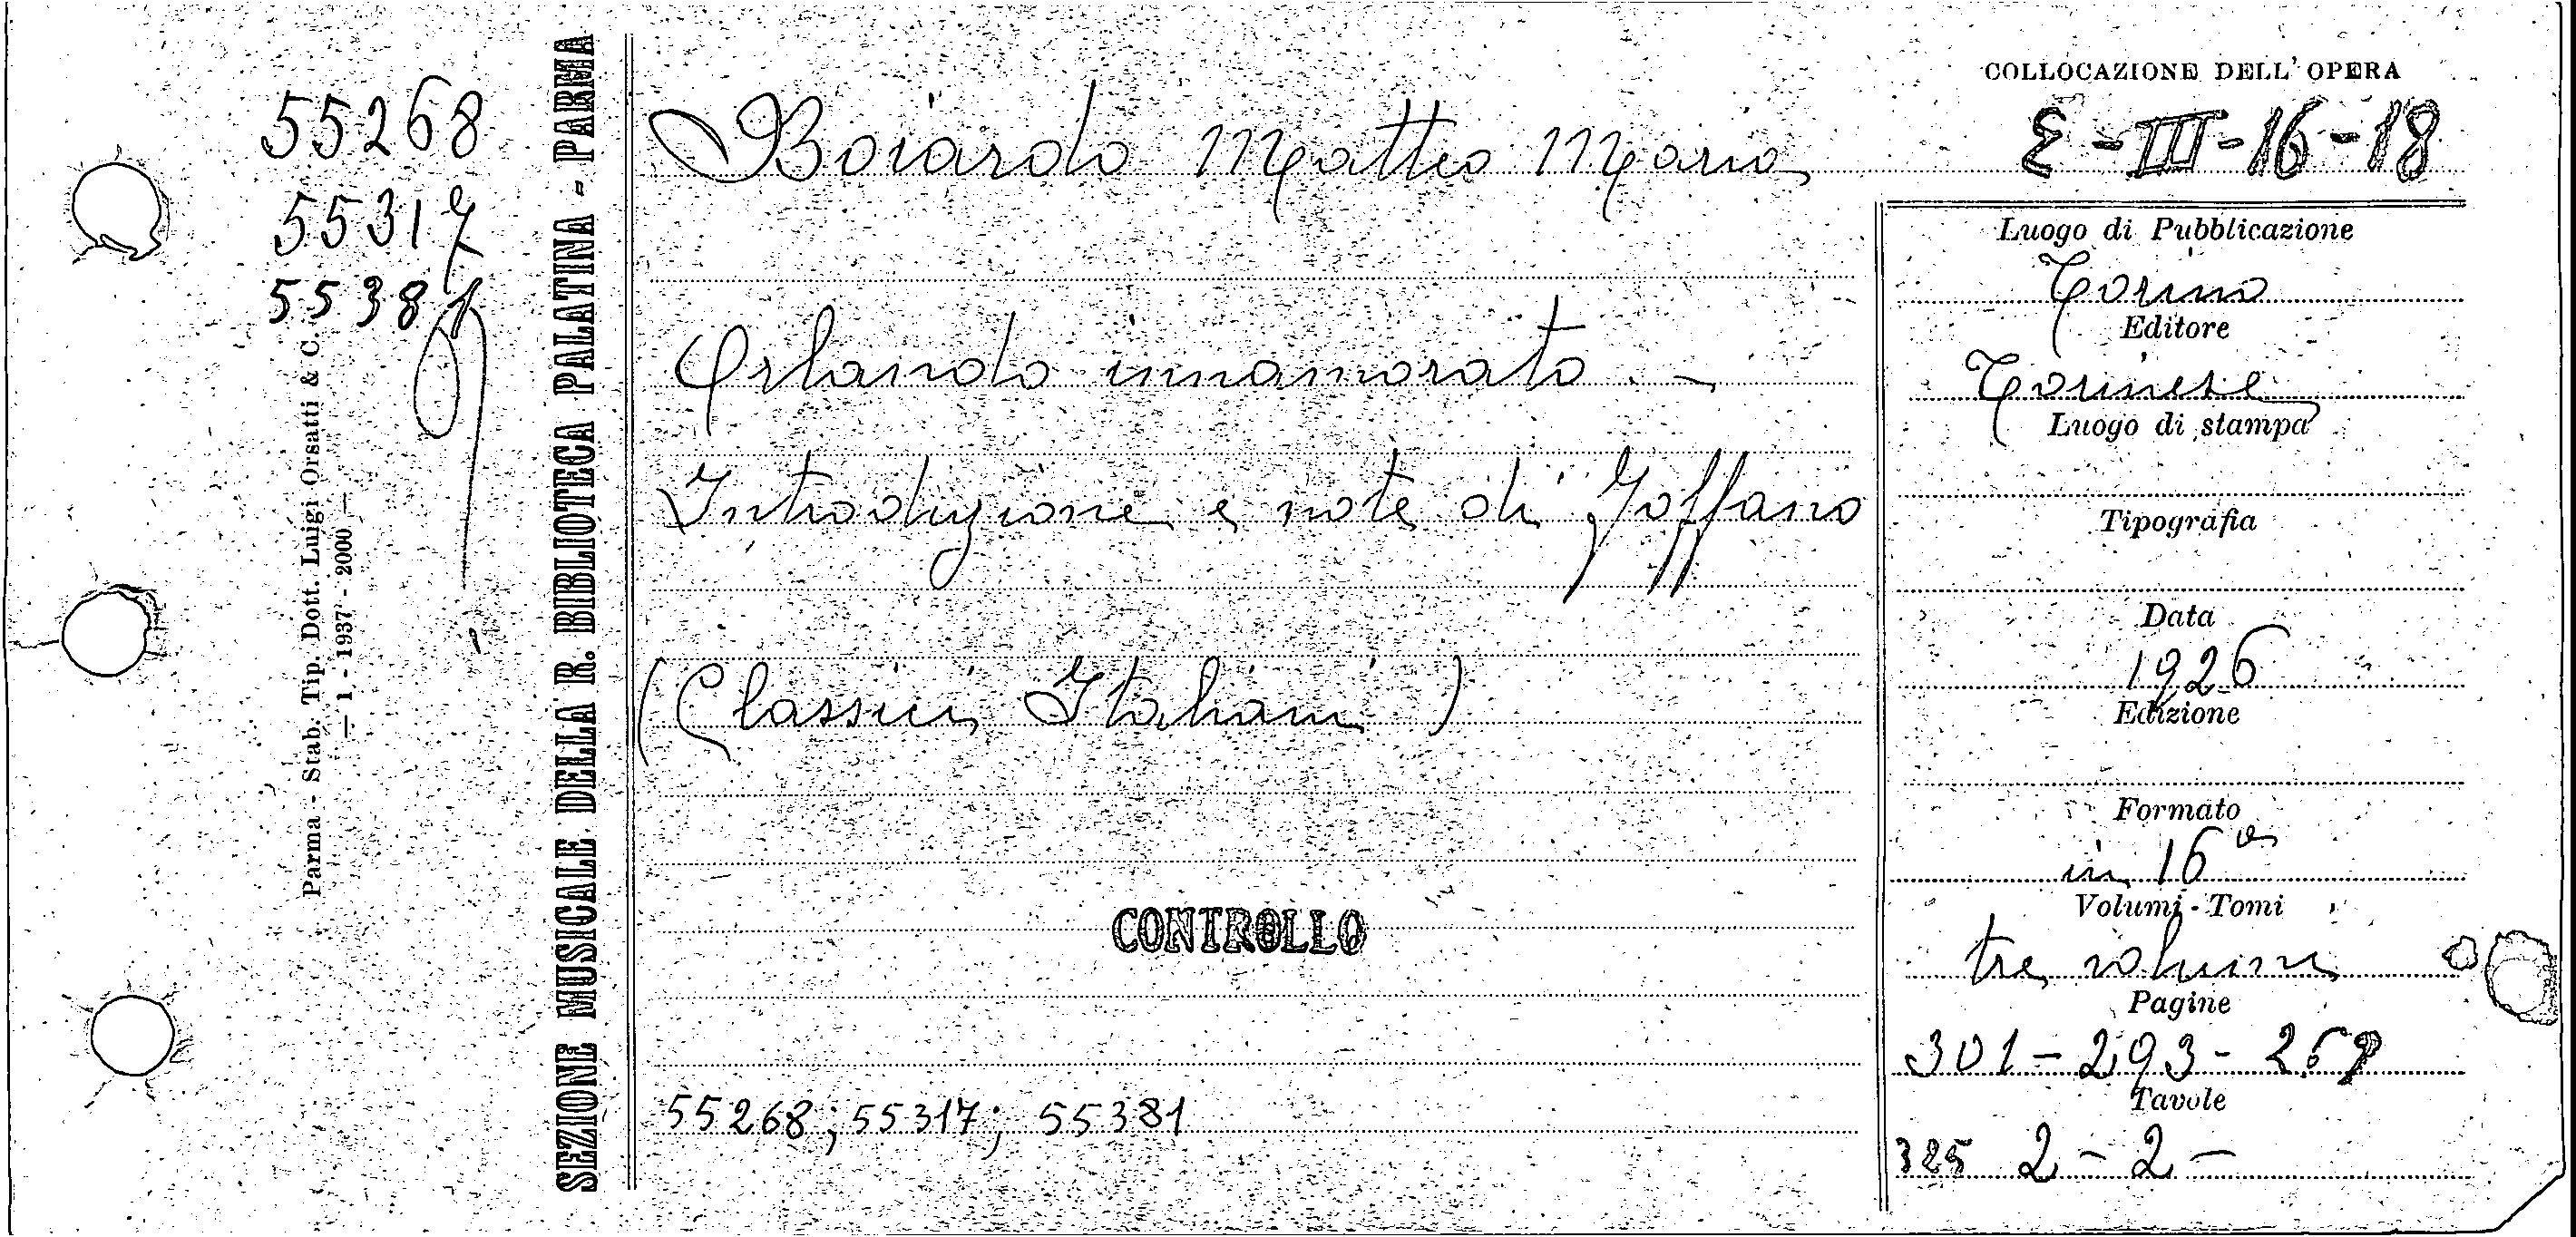 55268
55317
55381
Parma - Stab. Tip. Dott. Luigi Orsatti & C.
— 1 - 1937 - 2000 —
SEZIONE MUSICALE DELLA R. BIBLIOTECA PALATINA - PARMA
Boiardo Matteo Maria
Orlando innamorato. -
Introduzione e note di Foffano
(Classici Italiani)
CONTROLLO
55268; 55317; 55381
COLLOCAZIONE DELL' OPERA
E-III-16-18
Luogo di Pubblicazione
Torino
Editore
Torinese
Luogo di stampa
Tipografia
Data
1926
Edizione
Formato
in 16°
Volumi - Tomi
tre volumi
Pagine
301 - 293 -
Tavole
2 - 2 -